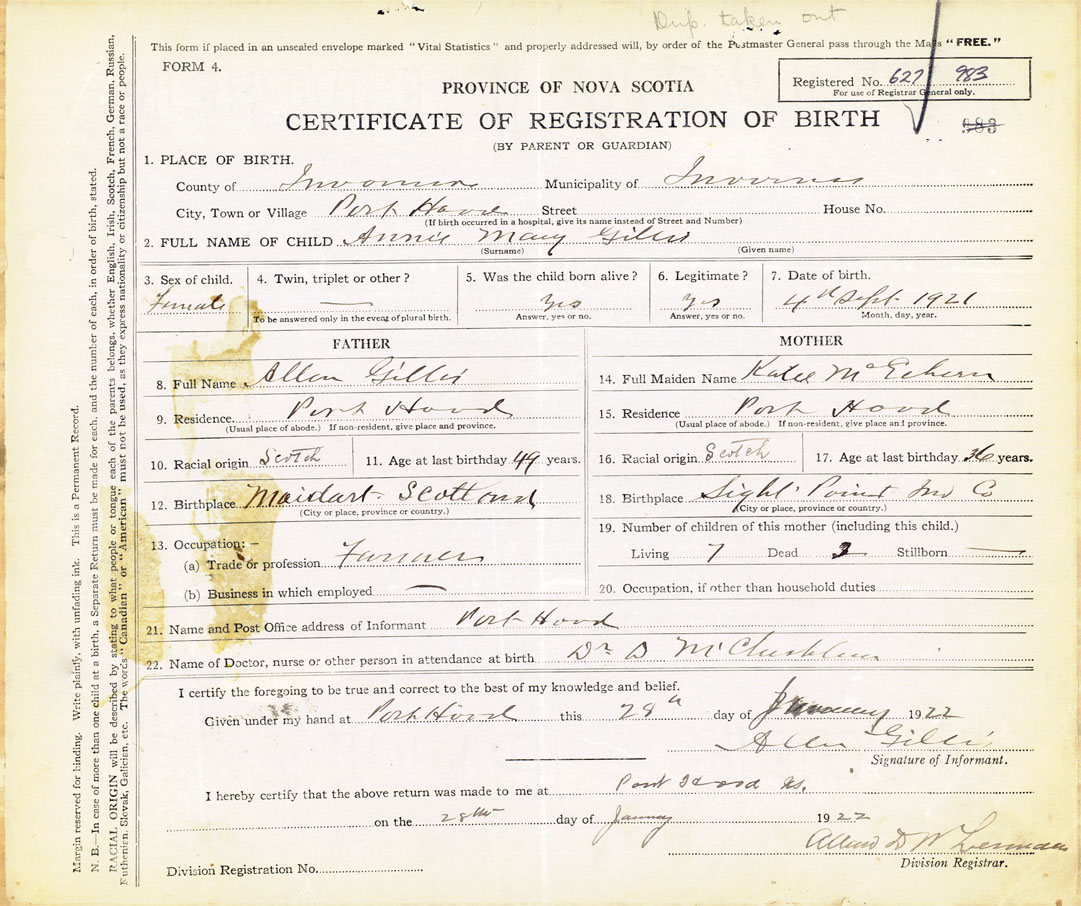 Dup. taken out
This form if placed in an unsealed envelope marked "Vital Statistics" and properly addressed will, by order of the Postmaster General pass through the Mails "FREE."
FORM 4.
Registered No. 627 983
For use of Registrar General only.
PROVINCE OF NOVA SCOTIA
CERTIFICATE OF REGISTRATION OF BIRTH
983
(BY PARENT OR GUARDIAN)
1. PLACE OF BIRTH.
County of Inverness Municipality of Inverness
City, Town or Village Port Hood Street House No.
(If birth occurred in a hospital, give its name instead of Street and Number)
2. FULL NAME OF CHILD Annie Mary Gillis
(Surname) (Given name)
3. Sex of child. 4. Twin, triplet or other? 5. Was the child born alive? 6. Legitimate? 7. Date of birth.
Female — Yes Yes 4th Sept 1921
To be answered only in the event of plural birth. Answer, yes or no. Answer, yes or no. Month, day, year.
FATHER
8. Full Name Allan Gillis
9. Residence Port Hood
(Usual place of abode.) If non-resident, give place and province.
10. Racial origin Scotch 11. Age at last birthday 49 years.
12. Birthplace Moidart Scotland
(City or place, province or country.)
13. Occupation: –
(a) Trade or profession Farmer
(b) Business in which employed —
MOTHER
14. Full Maiden Name Katie McEchern
15. Residence Port Hood
(Usual place of abode.) If non-resident, give place and province.
16. Racial origin Scotch 17. Age at last birthday 36 years.
18. Birthplace Sight Point Inv Co
(City or place, province or country.)
19. Number of children of this mother (including this child.)
Living 7 Dead Stillborn —
20. Occupation, if other than household duties
21. Name and Post Office address of Informant Port Hood
22. Name of Doctor, nurse or other person in attendance at birth Dr D
I certify the foregoing to be true and correct to the best of my knowledge and belief.
Given under my hand at Port Hood this 28th day of January 1922
Allan Gillis
Signature of Informant.
I hereby certify that the above return was made to me at Port Hood NS.
on the 28th day of January 1922
Division Registrar.
Division Registration No.
Margin reserved for binding. Write plainly, with unfading ink. This is a Permanent Record.
N. B.—In case of more than one child at a birth, a Separate Return must be made for each, and the number of each, in order of birth, stated.
RACIAL ORIGIN will be described by stating to what people or tongue each of the parents belongs, whether English, Irish, Scotch, French, German, Russian,
Ruthenian, Slovak, Galician, etc. The words "Canadian" or "American" must not be used, as they express nationality or citizenship but not a race or people.